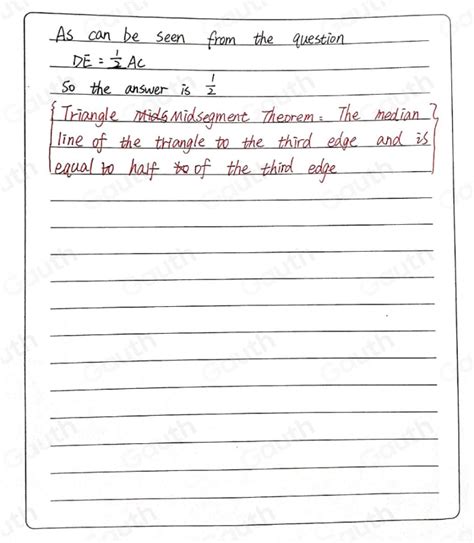 As can be seen from the question
DE = 1/2 AC
So the answer is 1/2
{ Triangle Mids Midsegment Theorem: The median }
line of the triangle to the third edge and is
equal to half to of the third edge
Gauth